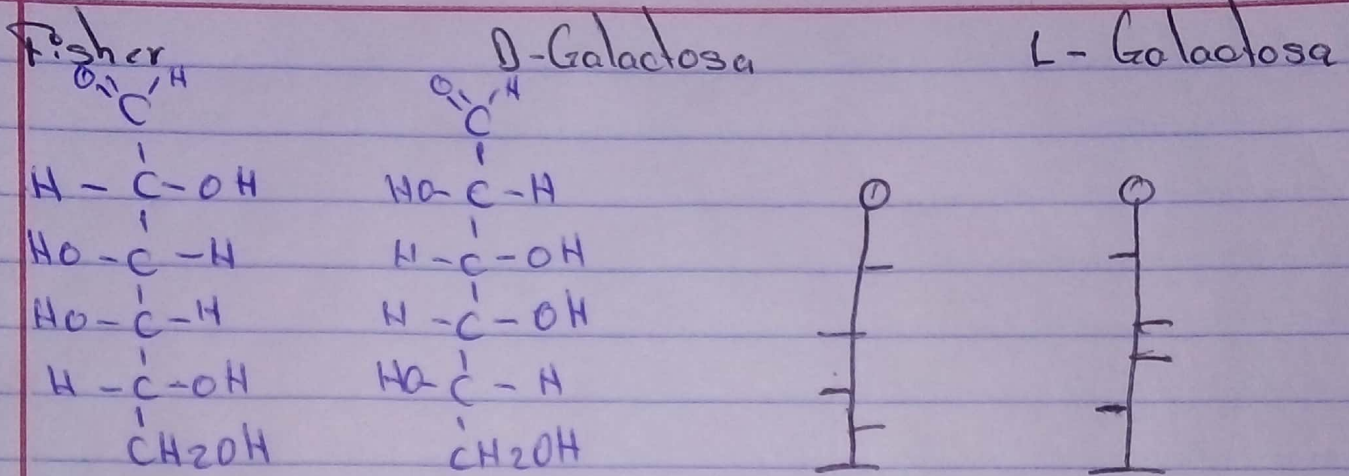 Fisher D-Galactosa L-Galactosa
O H O H
C C
H - C - OH HO - C - H
HO - C - H H - C - OH
HO - C - H H - C - OH
H - C - OH HO - C - H
CH2OH CH2OH